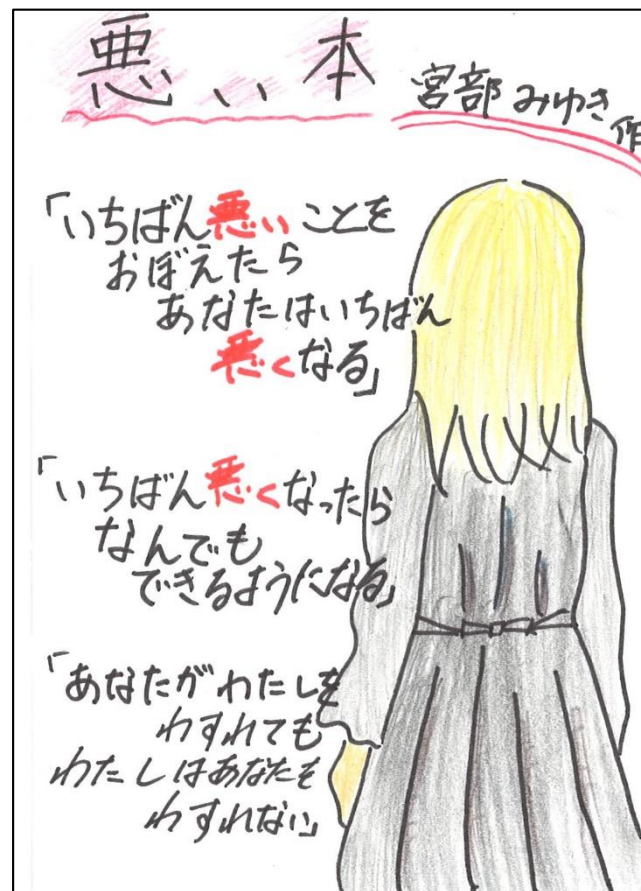 悪い本
宮部みゆき作
「いちばん悪いことを
おぼえたら
あなたはいちばん
悪くなる」
「いちばん悪くなったら
なんでも
できるようになる」
「あなたがわたしを
わすれても
わたしはあなたを
わすれない」